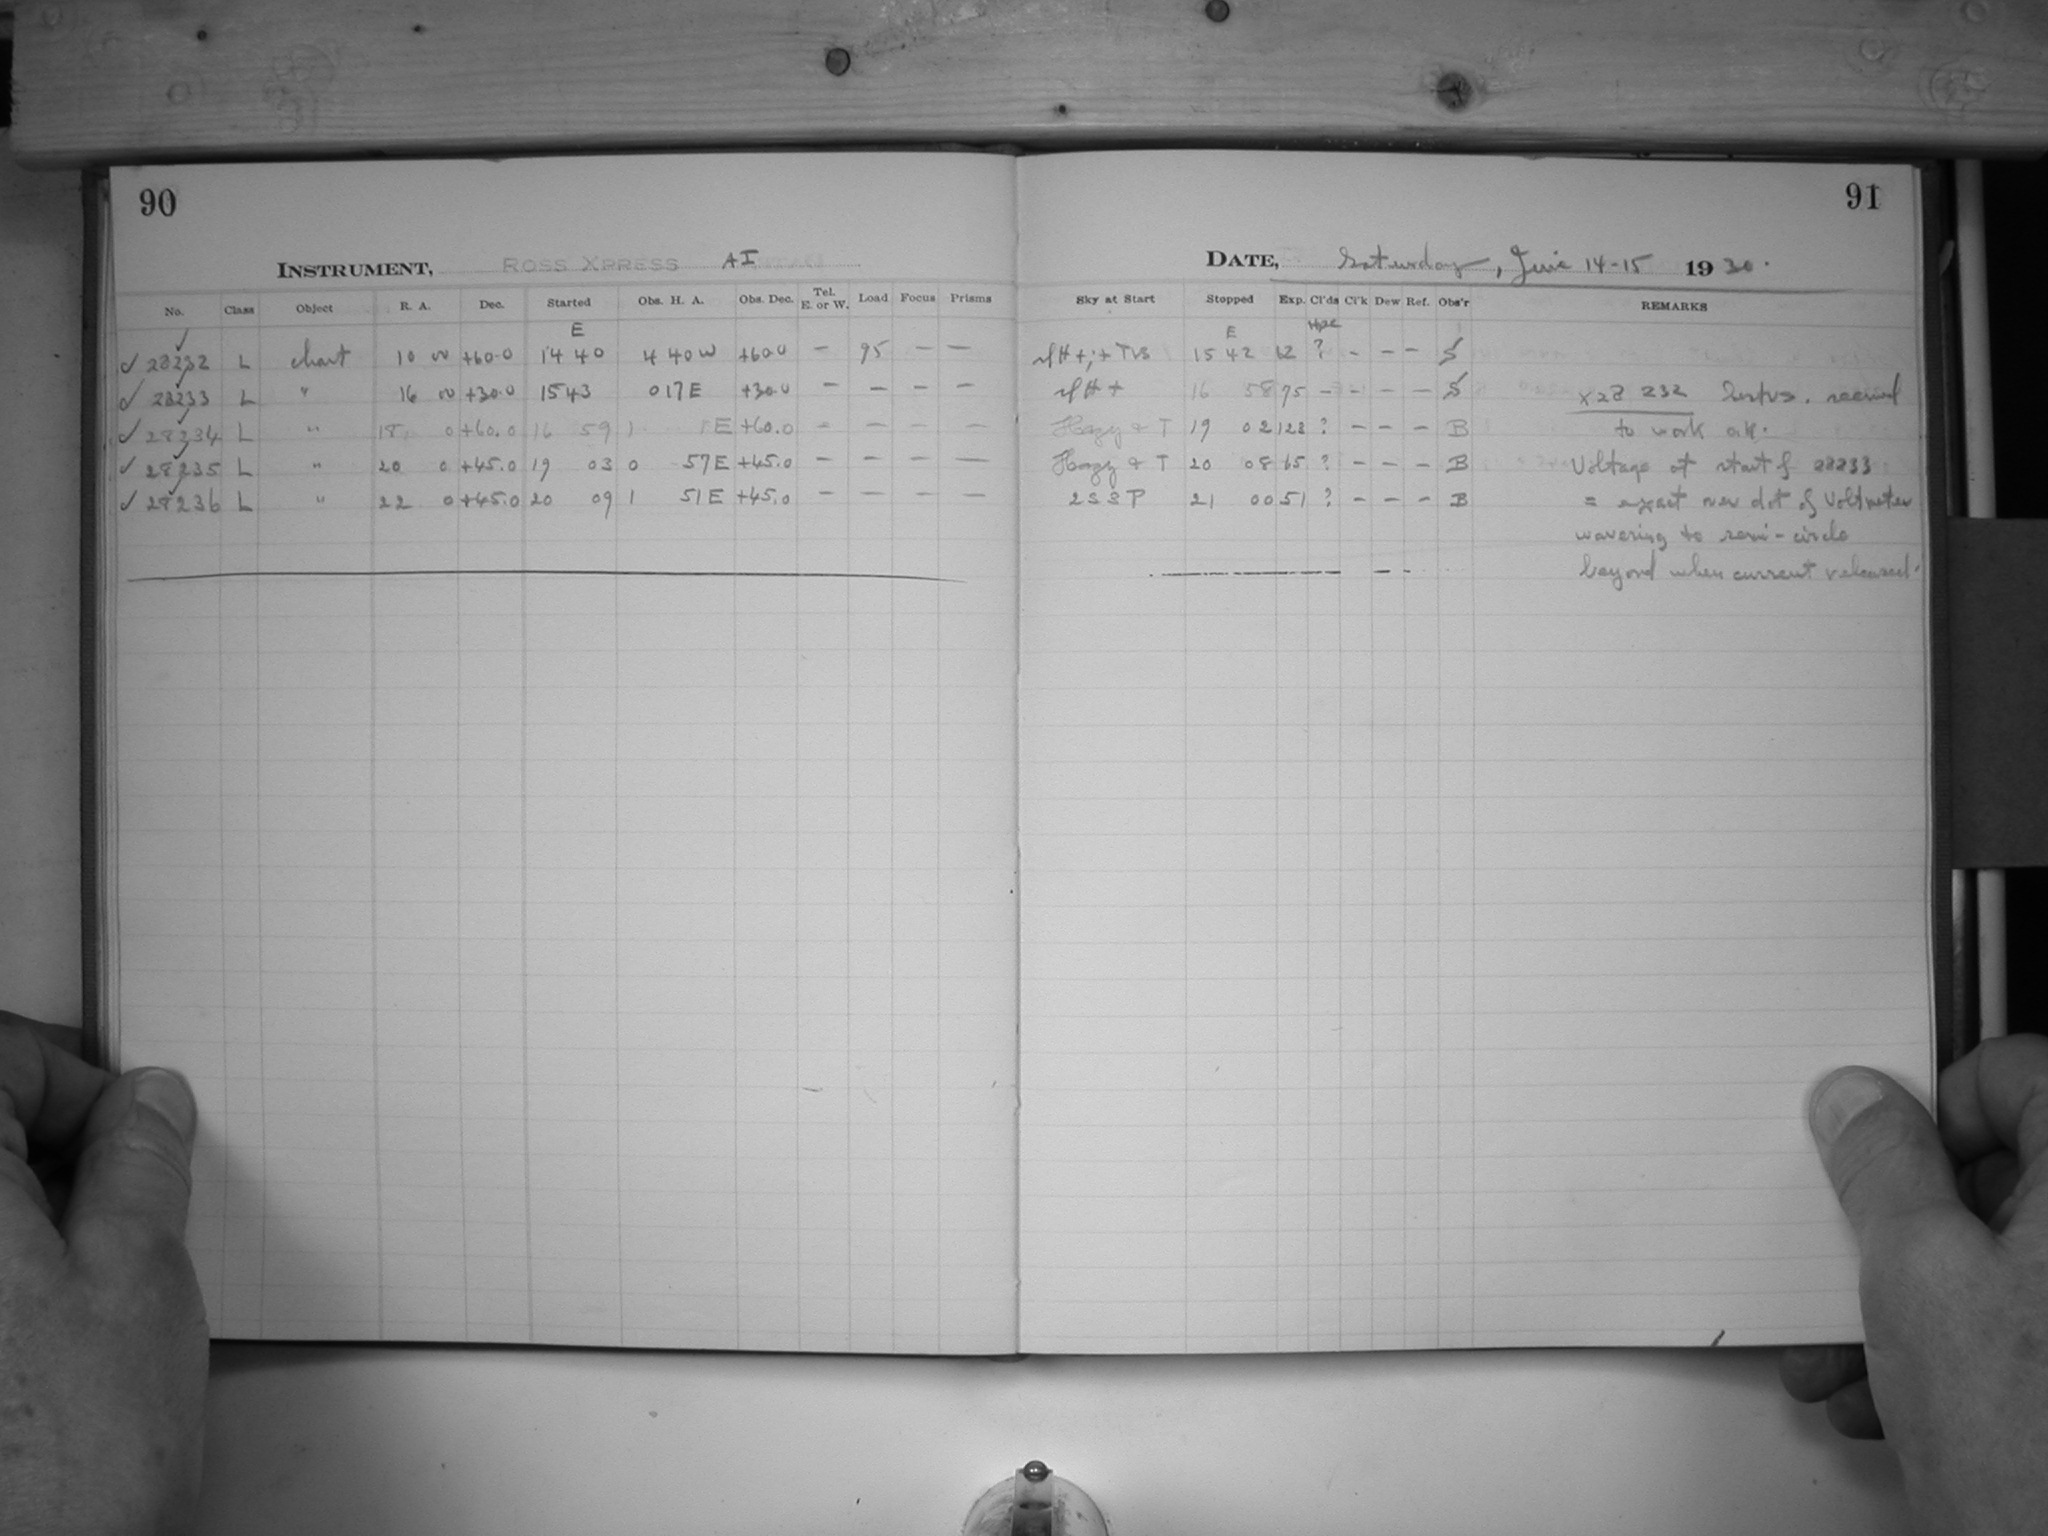 90
91
INSTRUMENT, ROSS XPRESS AI
DATE, Saturday, June 14-15 1930.
No. Class Object R. A. Dec. Started Obs. H. A. Obs. Dec. Tel. E. or W. Load Focus Prisms
Sky at Start Stopped Exp. Cl'ds Cl'k Dew Ref. Obs'r REMARKS
E
E
✓ 28232 L chart 10 00 +60.0 14 40 4 40 W +60.0 — 95 — —
15 42 62 ? - - - S
✓ 28233 L " 16 00 +30.0 15 43 0 17 E +30.0 — — — —
16 58 75 - - - - S
X28 232
✓ 28234 L " 18 0 +60.0 16 59 1 1 E +60.0 - - - -
Hazy & T 19 02 123 ? - - - B
to work ok.
✓ 28235 L " 20 0 +45.0 19 03 0 57 E +45.0 — — — —
Hazy & T 20 08 65 ? - - - B
Voltage at start of 28233
✓ 28236 L " 22 0 +45.0 20 09 1 51 E +45.0 — — — —
2 S S P 21 00 51 ? - - - B
= exact over dot of Voltmeter
wavering to semi-circle
beyond when current released.